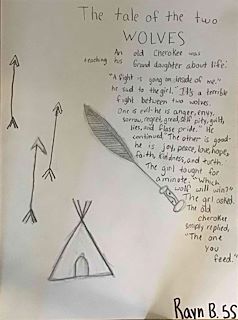 The tale of the two
WOLVES
An old Cherokee was
teaching his Grand daughter about life:
"A fight is going on inside of me."
he said to the girl. "It's a terrible
fight between two wolves.
One is evil-he is anger, envy,
sorrow, regret, greed, self pity, guilt,
lies, and flase pride." He
continued "The other is good-
he is joy, peace, love, hope,
faith, kindness, and truth.
The girl tought for
a minute. "Which
wolf will win?"
The girl asked.
The old
cherokee
simply replied,
"The one
you
feed."
Rayn B. SS